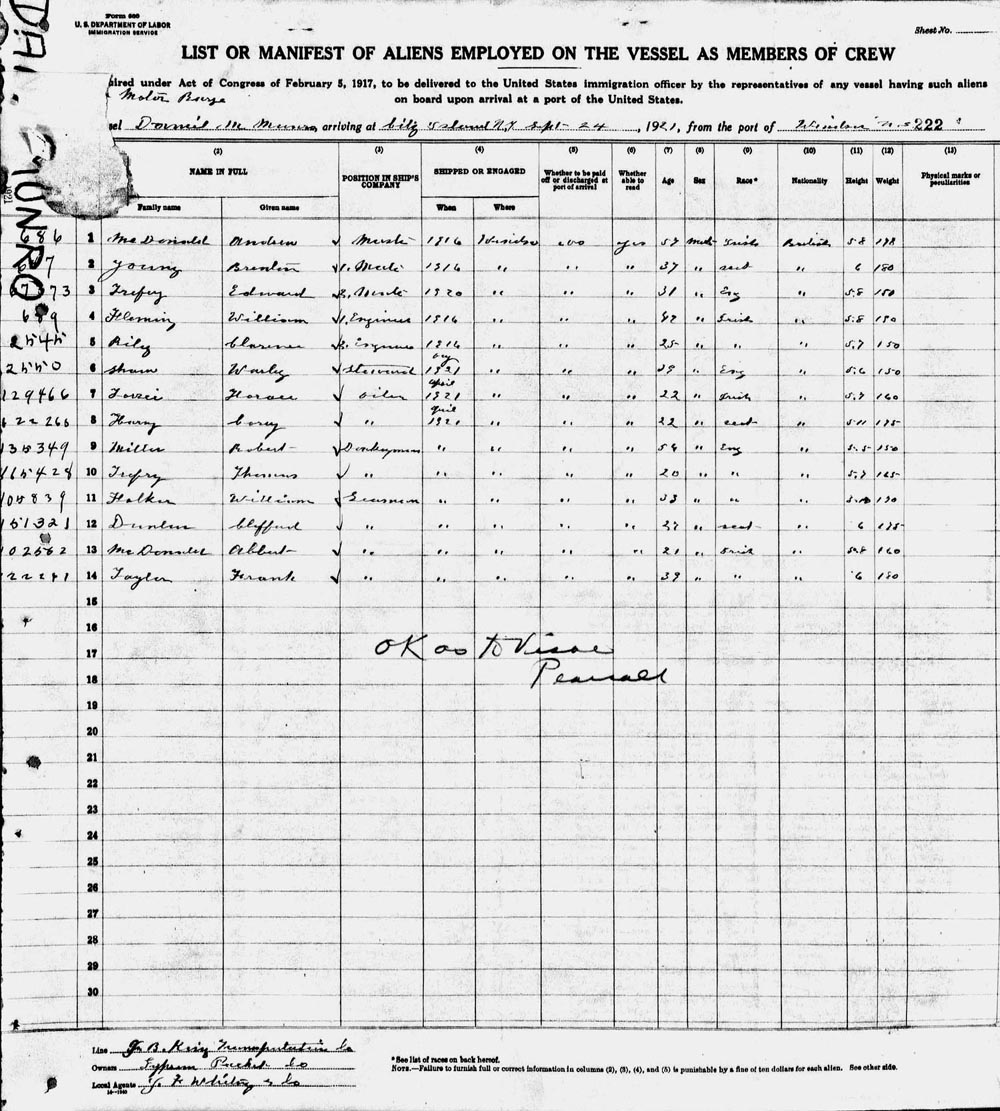 Form 680
U. S. DEPARTMENT OF LABOR
IMMIGRATION SERVICE
Sheet No.
LIST OR MANIFEST OF ALIENS EMPLOYED ON THE VESSEL AS MEMBERS OF CREW
ired under Act of Congress of February 5, 1917, to be delivered to the United States immigration officer by the representatives of any vessel having such aliens
on board upon arrival at a port of the United States.
Motor Barge
sel Daniel M Munro, arriving at City Island N.Y. Sept 24, 1921, from the port of Windsor N.S. 222
MUNRO
(2) (3) (4) (5) (6) (7) (8) (9) (10) (11) (12) (13)
NAME IN FULL POSITION IN SHIP'S COMPANY SHIPPED OR ENGAGED Whether to be paid off or discharged at port of arrival Whether able to read Age Sex Race* Nationality Height Weight Physical marks or peculiarities
Family name Given name When Where
686 1 McDonald Andrew Master 1916 Windsor yes 57 Male Irish British 5.8 198
2 Young Brenton 1. Mate 1916 " " " 37 " scot " 6 180
3 Trefry Edward 2. Mate 1920 " " " 31 " Eng " 5.8 150
689 4 Fleming William 1. Engineer 1916 " " " 42 " Irish " 5.8 190
2545 5 Riley Clarence 2. Engineer 1916 " " " 25 " " " 5.7 150
2550 6 Shaw Steward 1921 " " " 39 " Eng " 5.6 150
129466 7 Horace Oiler April 1921 " " " 22 " Irish " 5.7 160
8 Harvey Corey " April 1921 " " " 22 " scot " 5.11 175
135349 9 Miller Robert Donkeyman " " " " 54 " Eng " 5.5 150
165428 10 Trefry Thomas " " " " " 20 " " " 5.7 165
105839 11 William Seaman " " " " 33 " " " 5.10 190
151321 12 Clifford " " " " " 27 " scot " 6 175
102562 13 McDonald Albert " " " " " 21 " Irish " 5.8 160
14 Taylor Frank " " " " " 39 " " " 6 180
15
16
17 OK as to Visae
18 Pearsall
19
20
21
22
23
24
25
26
27
28
29
30
Line J. B. King Transportation Co
Owners Gypsum Packet Co
Local Agents J. F. Whitney & Co
*See list of races on back hereof.
NOTE.—Failure to furnish full or correct information in columns (2), (3), (4), and (5) is punishable by a fine of ten dollars for each alien. See other side.